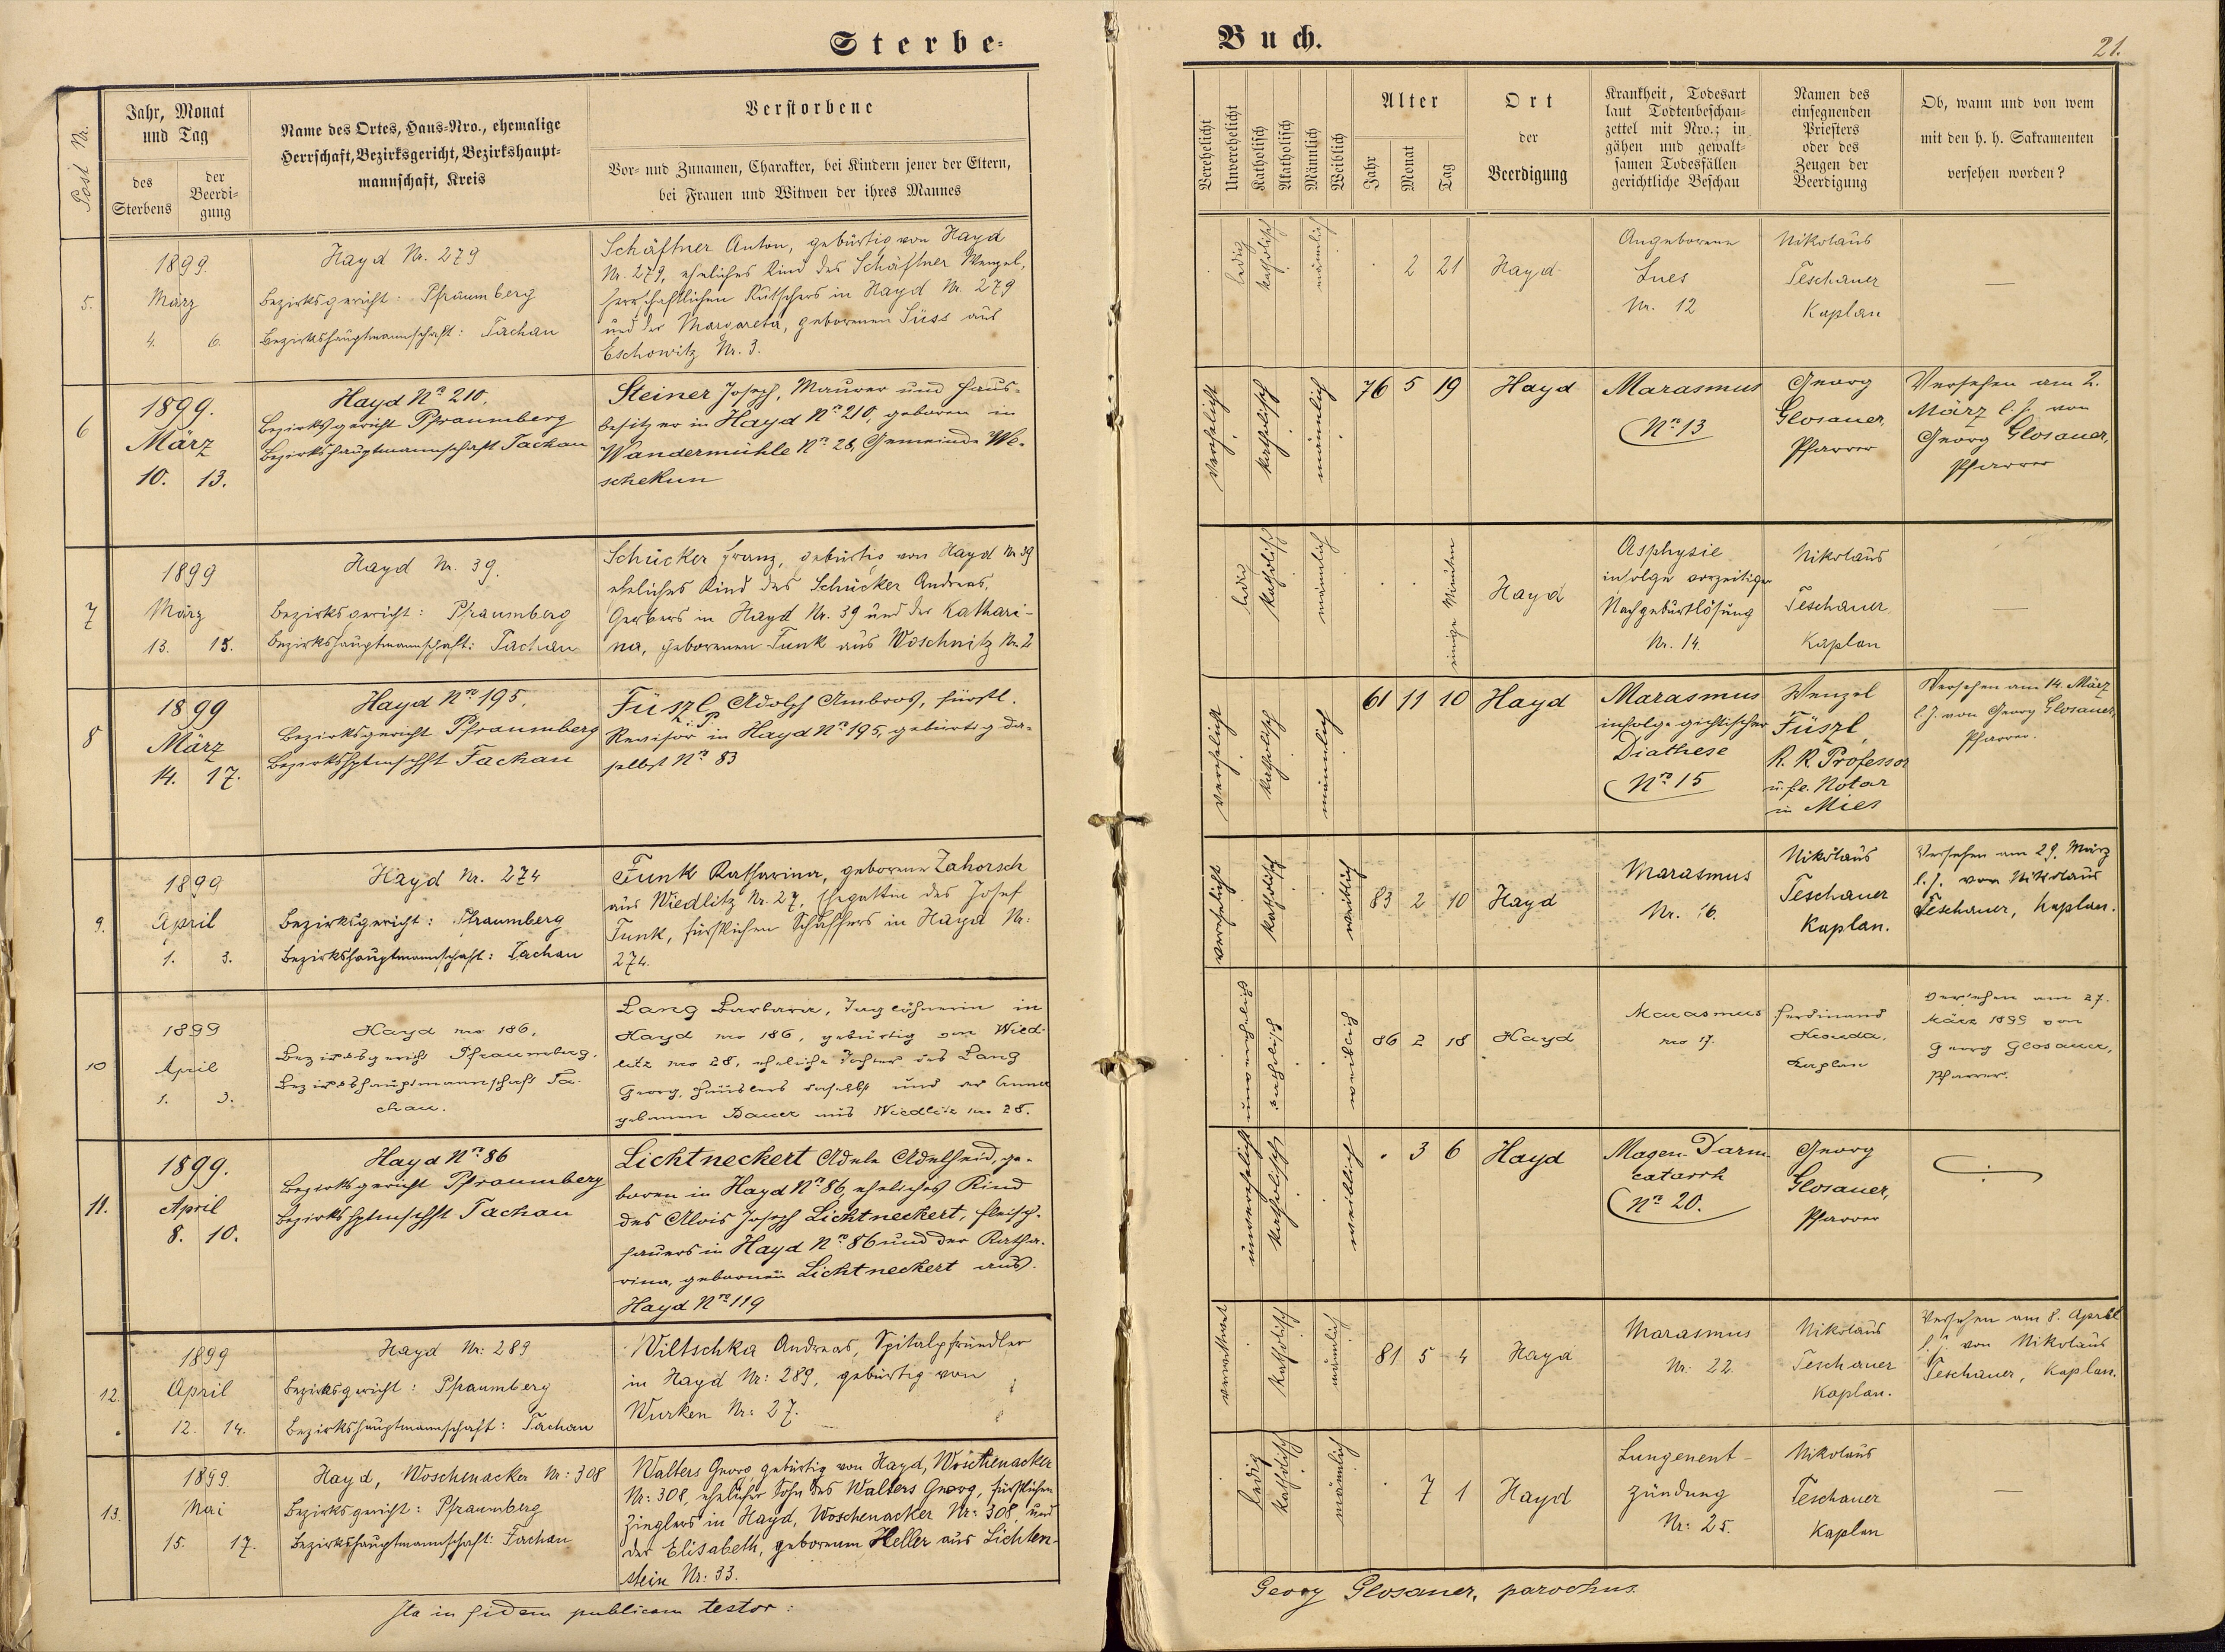 Sterbe-
Buch.
21.
Post Nr.
Jahr, Monat
und Tag
des
Sterbens
der
Beerdi-
gung
Name des Ortes, Haus-Nro., ehemalige
Herrschaft, Bezirksgericht, Bezirkshaupt-
mannschaft, Kreis
Verstorbene
Vor- und Zunamen, Charakter, bei Kindern jener der Eltern,
bei Frauen und Witwen der ihres Mannes
Verehelicht
Unverehelicht
Katholisch
Akatholisch
Männlich
Weiblich
Alter
Jahr
Monat
Tag
Ort
der
Beerdigung
Krankheit, Todesart
laut Todtenbeschau-
zettel mit Nro.; in
gähen und gewalt-
samen Todesfällen
gerichtliche Beschau
Namen des
einsegnenden
Priesters
oder des
Zeugen der
Beerdigung
Ob, wann und von wem
mit den h. h. Sakramenten
versehen worden?
5.
1899.
März
4. 6.
Hayd Nr. 279
Bezirksgericht: Pfraumberg
Bezirkshauptmannschaft: Tachau
Schäftner Anton, gebürtig von Hayd
Nr. 279, eheliches Kind des Schäftner Wenzel,
herrschaftlichen Kutschers in Hayd Nr. 279
und der Margareta, geborenen Süss aus
Eschowitz Nr. 3.
ledig
katholisch
männlich
2 21
Hayd
Angeborene
Lues
Nr. 12
Nikolaus
Teschauer
Kaplan
—
6
1899.
März
10. 13.
Hayd Nro 210.
Bezirksgericht Pfraumberg
Bezirkshauptmannschaft Tachau
Steiner Josef, Maurer und Haus-
besitzer in Hayd Nro 210, geboren in
Wandermühle Nro 28, Gemeinde We-
schekun
verehelicht
katholisch
männlich
76 5 19
Hayd
Marasmus
Nro 13
Georg
Glosauer,
Pfarrer
Versehen am 2.
März l. J. von
Georg Glosauer,
Pfarrer
7
1899
März
13. 15.
Hayd Nr. 39.
Bezirksgericht: Pfraumberg
Bezirkshauptmannschaft: Tachau
Schücker Franz, gebürtig von Hayd Nr 39
eheliches Kind des Schücker Andreas,
Gerbers in Hayd Nr. 39 und der Kathari-
na, geborenen Funk aus Woschnitz Nr. 2
ledig
katholisch
männlich
einige Minuten
Hayd
Asphysie
infolge vorzeitiger
Nachgeburtlösung
Nr. 14.
Nikolaus
Teschauer
Kaplan
—
8
1899
März
14. 17.
Hayd Nro 195,
Bezirksgericht Pfraumberg
Bezirkshptmschft Tachau
Füszl Adolf Ambros, fürstl.
Revisor i. P. in Hayd Nro 195, gebürtig da-
selbst Nro 83
verehelicht
katholisch
männlich
61 11 10
Hayd
Marasmus
infolge gichtischer
Diathese
Nro 15
Wenzel
Füszl,
K. K. Professor
u. f. e. Notar
in Mies
Versehen am 14. März
l. J. von Georg Glosauer,
Pfarrer.
9.
1899
April
1. 3.
Hayd Nr. 274
Bezirksgericht: Pfraumberg
Bezirkshauptmannschaft: Tachau
Funk Katharina, geborene Zahorsch
aus Wiedlitz Nr. 27, Ehegattin des Josef
Funk, fürstlichen Schaffers in Hayd Nr:
274.
verehelicht
katholisch
weiblich
83 2 10
Hayd
Marasmus
Nr. 16.
Nikolaus
Teschauer
Kaplan.
Versehen am 29. März
l. J. von Nikolaus
Teschauer, Kaplan.
10
1899
April
1. 3.
Hayd nro 186,
Bezirksgericht Pfraumberg,
Bezirkshauptmannschaft Ta-
chau.
Lang Barbara, Taglöhnerin in
Hayd nro 186, gebürtig von Wied-
litz nro 28, eheliche Tochter des Lang
Georg, Häuslers daselbst und der Anna
gebornen Bauer aus Wiedlitz nro 28.
unverehelicht
katholisch
weiblich
86 2 18
Hayd
Marasmus
nro 17.
Ferdinand
Kaplan
Versehen am 27.
März 1899 von
Georg Glosauer,
Pfarrer.
11.
1899.
April
8. 10.
Hayd Nro 86
Bezirksgericht Pfraumberg
Bezirkshptmschft Tachau
Lichtneckert Adele Adelheid, ge-
boren in Hayd Nro 86, eheliches Kind
des Alois Josef Lichtneckert, Fleisch-
hauers in Hayd Nro 86 und der Katha-
rina, gebornen Lichtneckert aus
Hayd Nro 119
unverehelicht
katholisch
weiblich
3 6
Hayd
Magen-Darm
catarrh
Nro 20.
Georg
Glosauer,
Pfarrer
12.
1899
April
12. 14.
Hayd Nr: 289
Bezirksgericht: Pfraumberg
Bezirkshauptmannschaft: Tachau
Wiltschka Andreas, Spitalpfründler
in Hayd Nr: 289, gebürtig von
Wurken Nr: 27.
verwitwet
katholisch
männlich
81 5 4
Hayd
Marasmus
Nr: 22.
Nikolaus
Teschauer
Kaplan.
Versehen am 8. April
l. J. von Nikolaus
Teschauer, Kaplan.
13.
1899.
Mai
15. 17.
Hayd, Woschenacker Nr: 308
Bezirksgericht: Pfraumberg
Bezirkshauptmannschaft: Tachau
Walters Georg, gebürtig von Hayd, Woschenacker
Nr: 308, ehelicher Sohn des Walters Georg, fürstlichen
Zieglers in Hayd, Woschenacker Nr: 308, und
der Elisabeth, geborenen Heller aus Lichten-
stein Nr: 33.
ledig
katholisch
männlich
7 1
Hayd
Lungenent-
zündung
Nr: 25.
Nikolaus
Teschauer
Kaplan
—
Ita in fidem publicam testor:
Georg Glosauer, parochus.